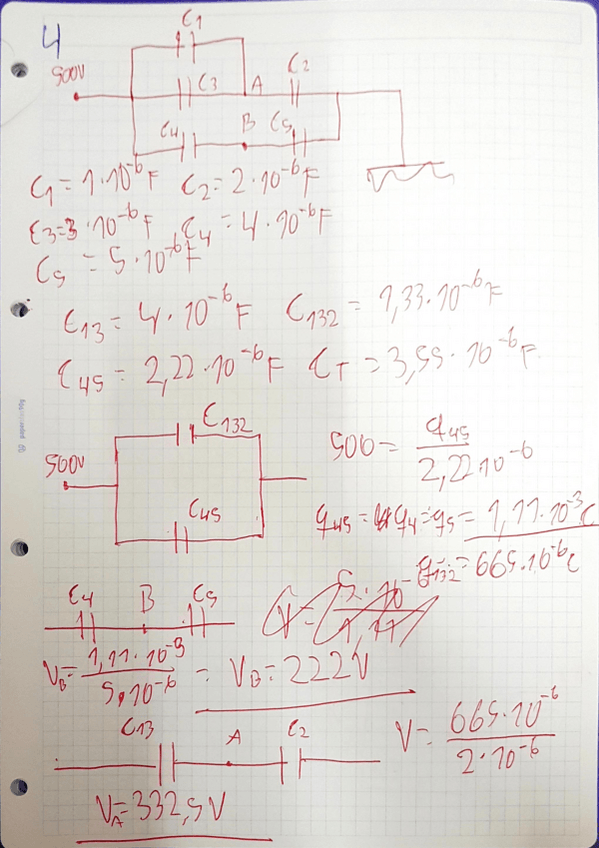 4
C1
500V
C3 A C2
C4 B C5
C1 = 1·10^-6 F C2 = 2·10^-6 F
C3=3·10^-6 F C4 = 4·10^-6 F
C5 = 5·10^-6 F
C13 = 4·10^-6 F C132 = 1,33·10^-6 F
C45 = 2,22·10^-6 F CT = 3,55·10^-6 F
C132
500V
C45
500 = q45 / 2,22·10^-6
q45 = q4 = q5 = 1,11·10^-3 C
q132 = 665·10^-6 C
C4 B C5
VB = 1,11·10^-3 / 5·10^-6 = VB = 222V
C13 A C2
V = 665·10^-6 / 2·10^-6
VA = 332,5V